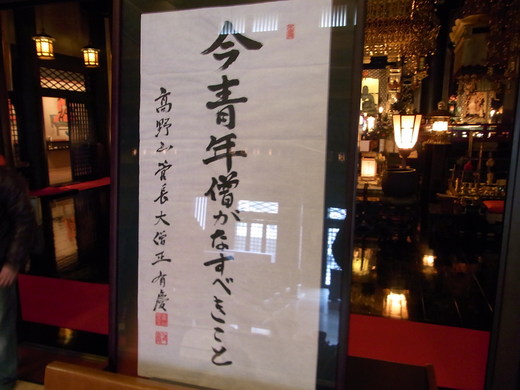 今青年僧がなすべきこと
高野山管長大僧正有慶